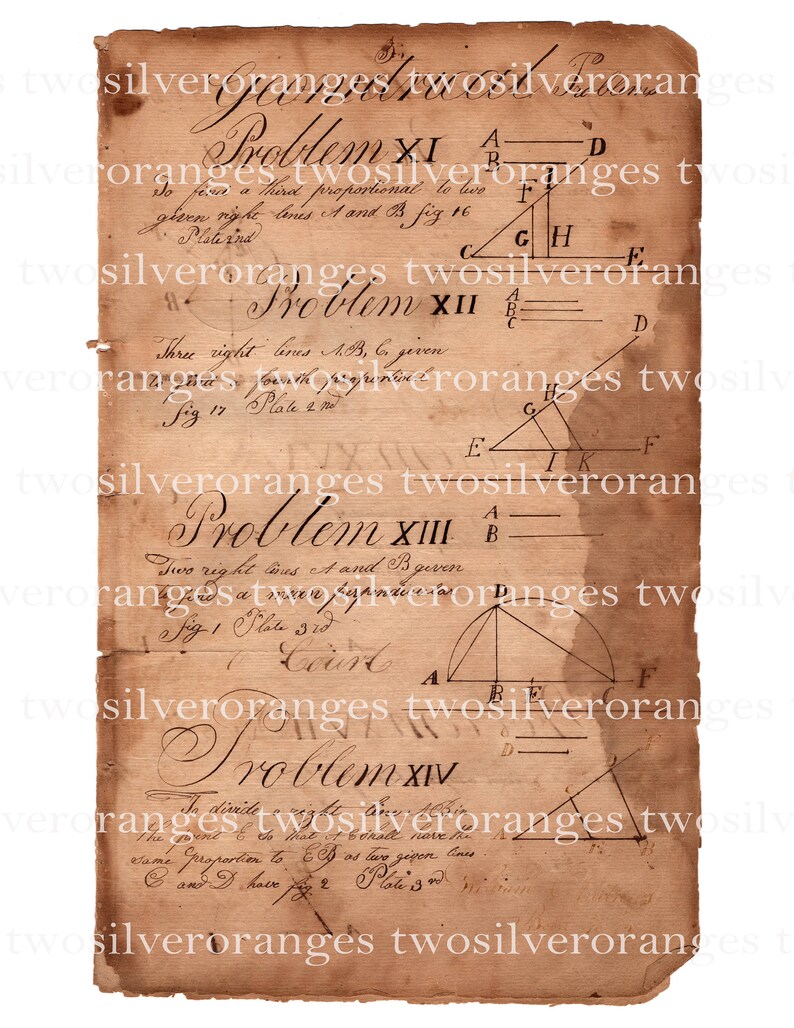 Geometrical Problems
Problem XI
To find a third proportional to two
given right lines A and B fig 16
Plate 2nd
A
B
D
F
I
G
H
C
E
Problem XII
Three right lines A, B, C, given
to find a fourth proportional
fig 17 Plate 2nd
A
B
C
D
H
G
E
I
K
F
Problem XIII
Two right lines A and B given
to find a mean perpendicular
fig 1 Plate 3rd
A
B
D
A
B
E
C
F
Court
Problem XIV
To divide a right line AB in
the point E so that AE shall have the
same proportion to EB as two given lines
C and D have fig. 2 Plate 3rd
D
A
B
twosilveroranges twosilveroranges
twosilveroranges twosilveroranges
silveroranges twosilveroranges twosilver
twosilveroranges twosilveroranges
silveroranges twosilveroranges twosilver
twosilveroranges twosilveroranges
silveroranges twosilveroranges twosilver
twosilveroranges twosilveroranges